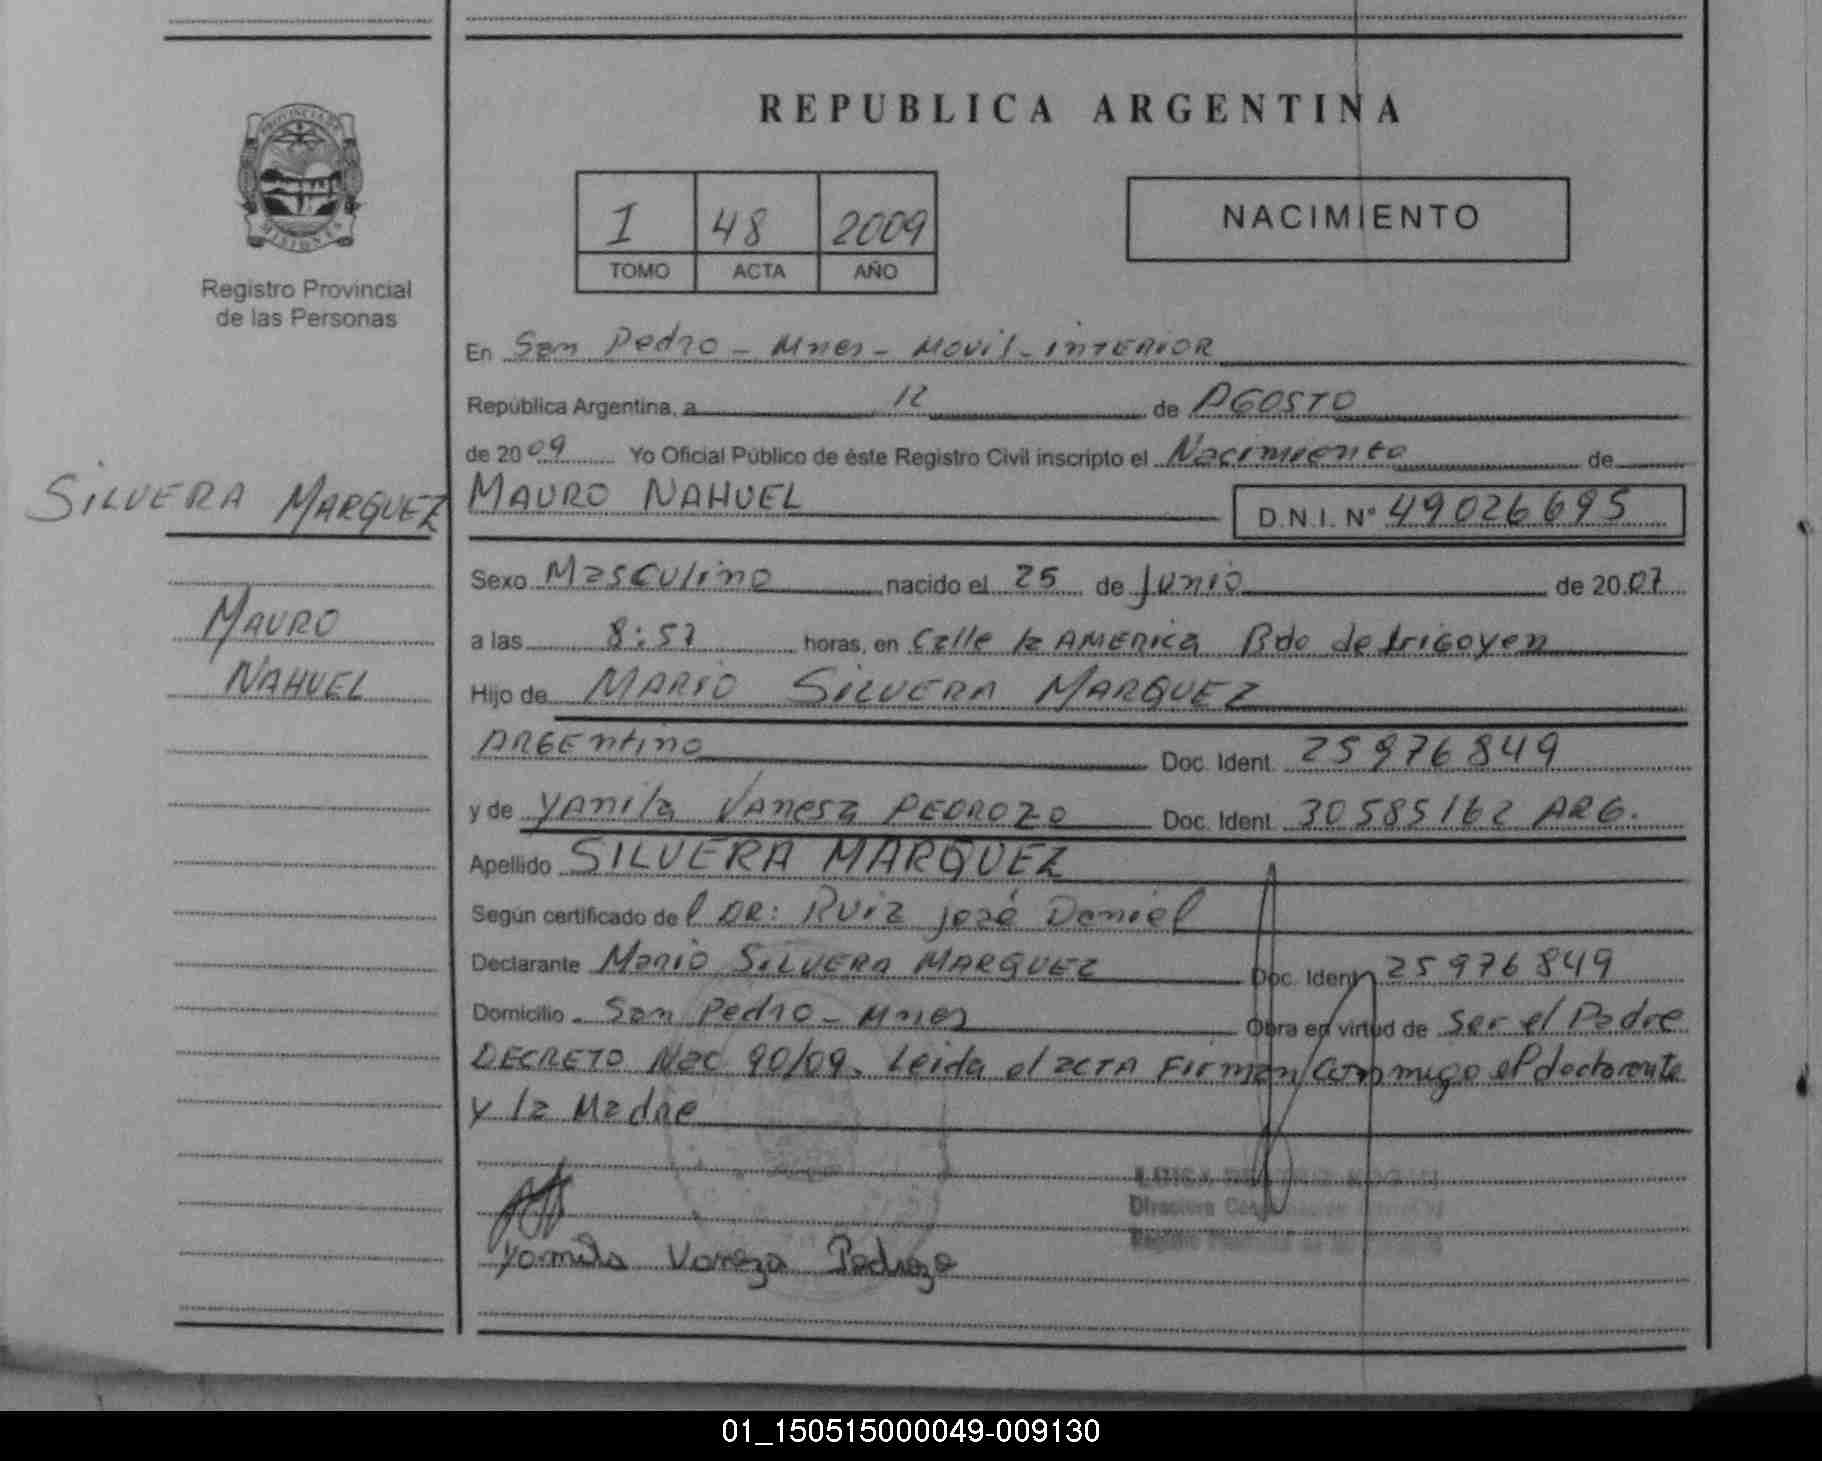 REPUBLICA ARGENTINA
PROVINCIA DE
MISIONES
Registro Provincial
de las Personas
I 48 2009
TOMO ACTA AÑO
NACIMIENTO
En San Pedro - Mnes - Movil - INTERIOR
República Argentina, a 12 de AGOSTO
de 20 09 Yo Oficial Público de éste Registro Civil inscripto el Nacimiento de
SILVERA MARQUEZ
MAURO NAHUEL D.N.I. N° 49026695
MAURO
NAHUEL
Sexo Masculino nacido el 25 de Junio de 20 07
a las 8:57 horas, en Calle la AMERICA Bdo de Irigoyen
Hijo de MARIO SILVERA MARQUEZ
ARGENtino Doc. Ident. 25976849
y de YAnila VAnesa PEDROZO Doc. Ident. 30585162 ARG.
Apellido SILVERA MARQUEZ
Según certificado de l DR: Ruiz José Daniel
Declarante Mario SILVERA MARQUEZ Doc. Ident. 25976849
Domicilio San Pedro - Mnes Obra en virtud de Ser el Padre
DECRETO Nac 90/09. Leida el acta Firman Conmigo el
y la Madre
Directora
Vaneza Pedrozo
01_150515000049-009130